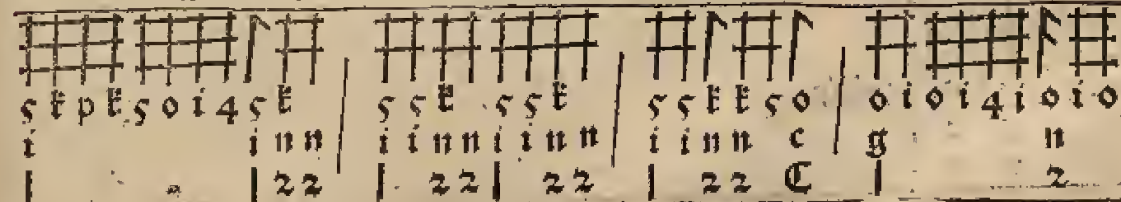 5 k p k 5 o i 4 5 k | 5 5 k 5 5 k | 5 5 k k 5 o | o i o i 4 i o i o
i i n n | i i n n i i n n | i i n n c | g n
1 1 2 2 1 2 2 1 2 2 1 2 2 C 1 2